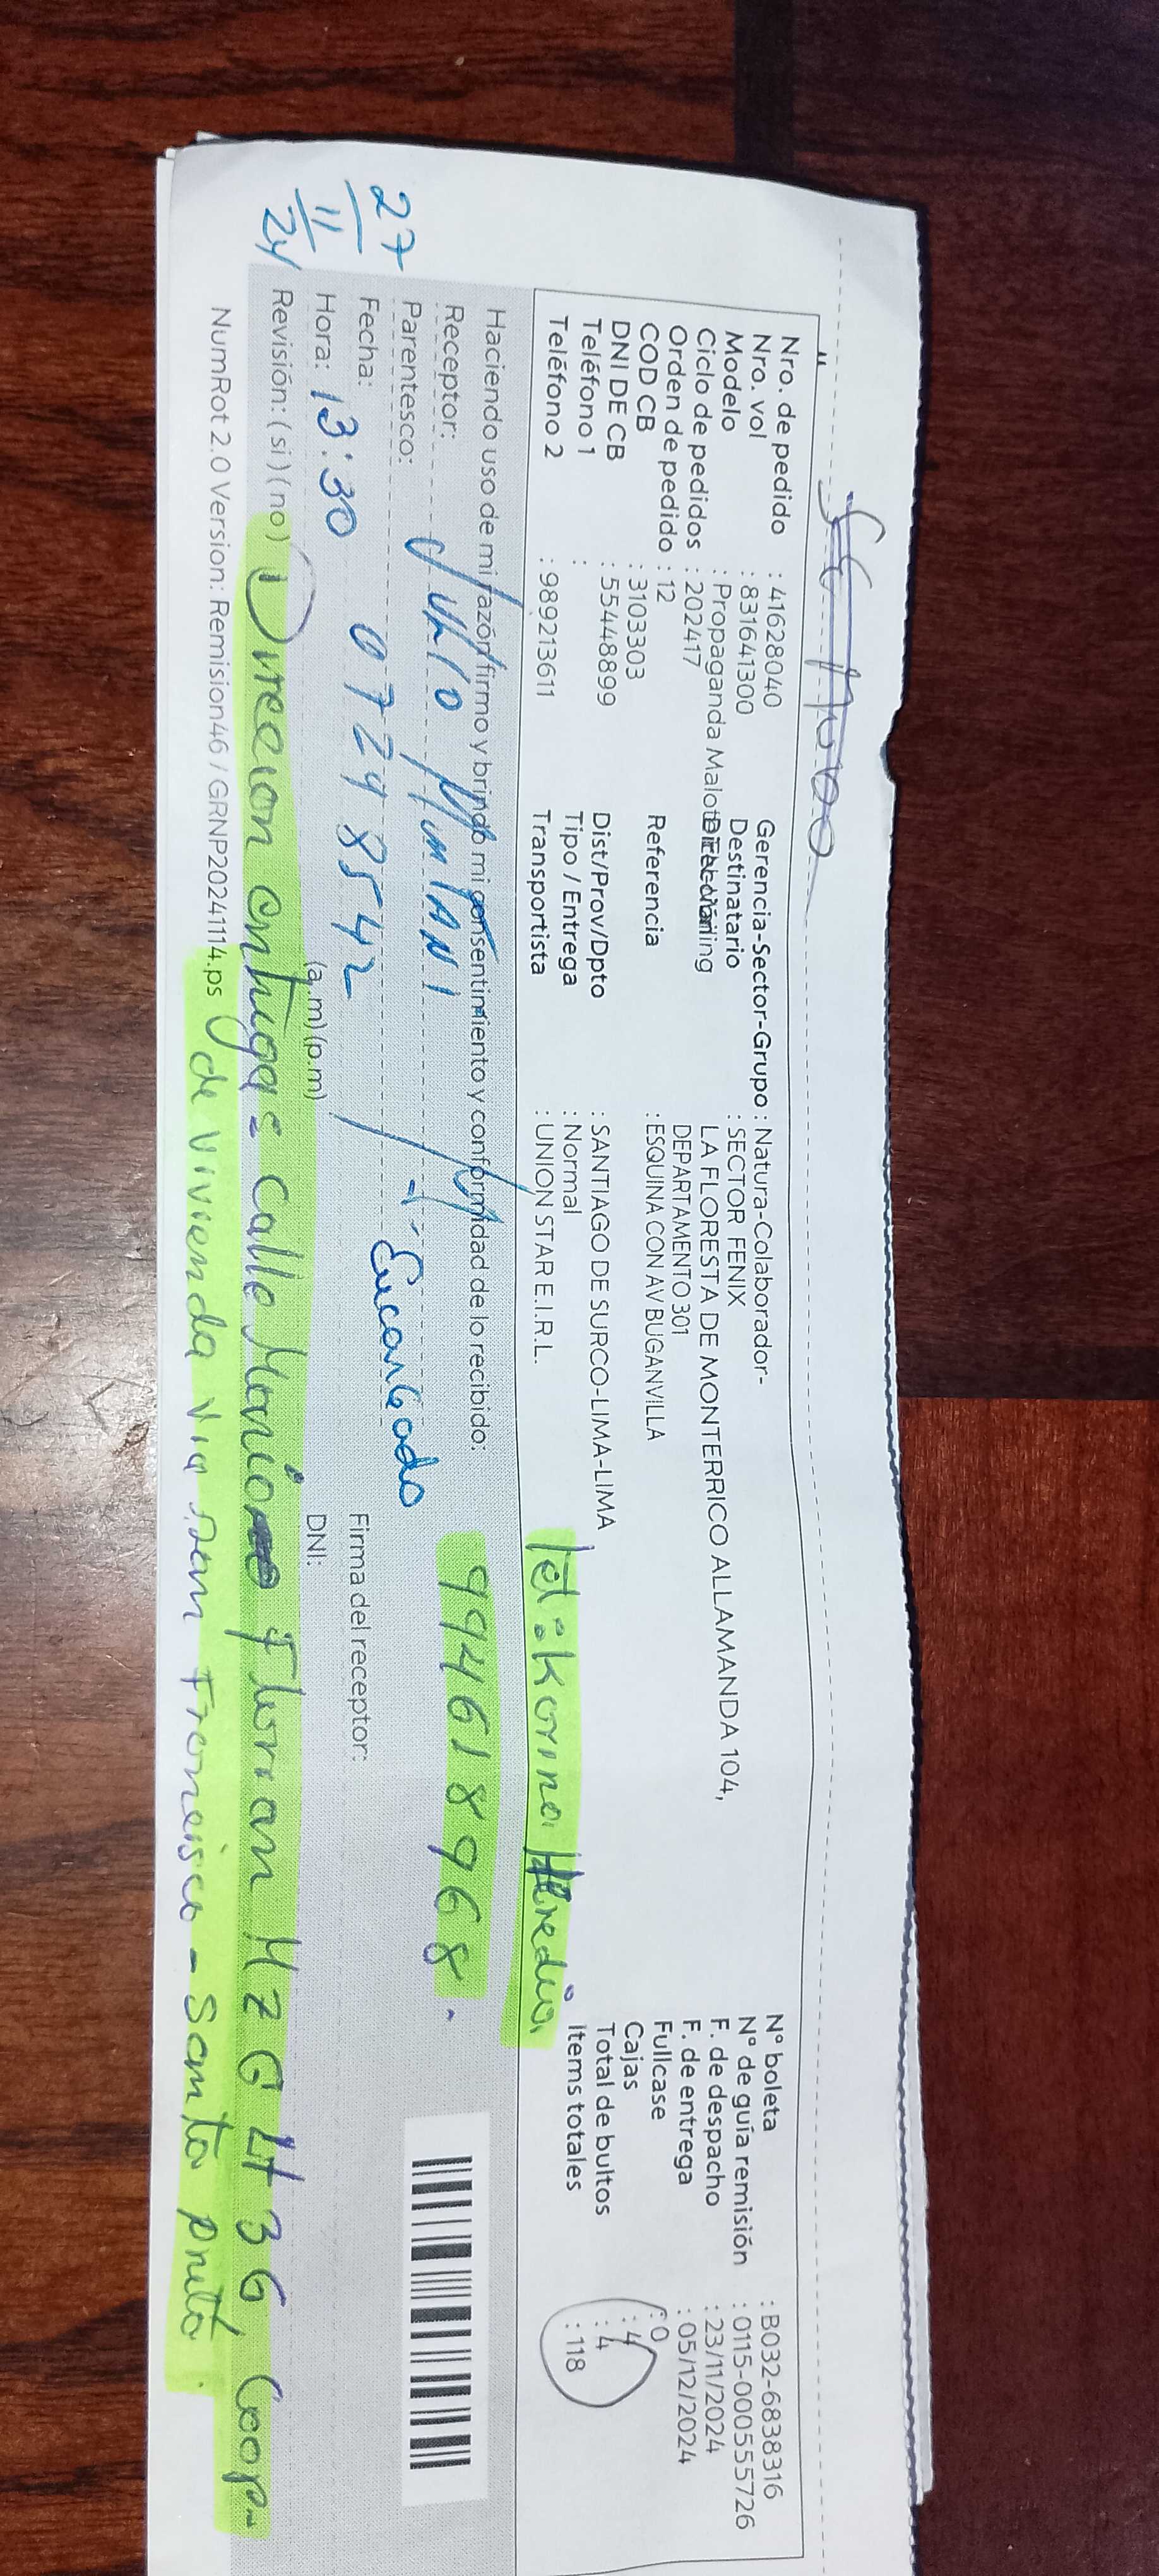 Nro. de pedido : 41628040
Nro. vol : 831641300
Modelo : Propaganda Malote Tele-Mailing
Ciclo de pedidos : 202417
Orden de pedido : 12
COD CB : 3103303
DNI DE CB : 55448899
Teléfono 1 :
Teléfono 2 : 989213611
Gerencia-Sector-Grupo : Natura-Colaborador-
Destinatario : SECTOR FENIX
Dirección LA FLORESTA DE MONTERRICO ALLAMANDA 104,
DEPARTAMENTO 301
Referencia : ESQUINA CON AV BUGANVILLA
Dist/Prov/Dpto : SANTIAGO DE SURCO-LIMA-LIMA
Tipo / Entrega : Normal
Transportista : UNION STAR E.I.R.L.
N° boleta : B032-6838316
N° de guía remisión : 0115-000555726
F. de despacho : 23/11/2024
F. de entrega : 05/12/2024
Fullcase : 0
Cajas : 4
Total de bultos : 4
Items totales : 118
Tel: Korina Heredia
994618968.
Haciendo uso de mi razón firmo y brindo mi consentimiento y conformidad de lo recibido:
Receptor: Julio
Parentesco: Encargado
Fecha: 07298542
27
11
24
Hora: 13:30 (a.m) (p.m)
Firma del receptor:
DNI:
Revisión: (si) (no)
Direcion antigua: Calle Mariano Florian Mz G Lt 36, Coop.
NumRot 2.0 Version: Remision46 / GRNP20241114.ps
de vivienda Via San Francisco - Santa